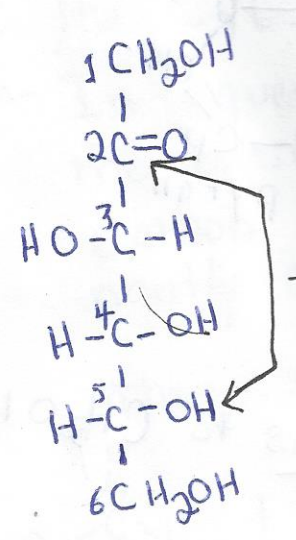 1 CH2OH
2C=O
HO-3C-H
H-4C-OH
H-5C-OH
6CH2OH